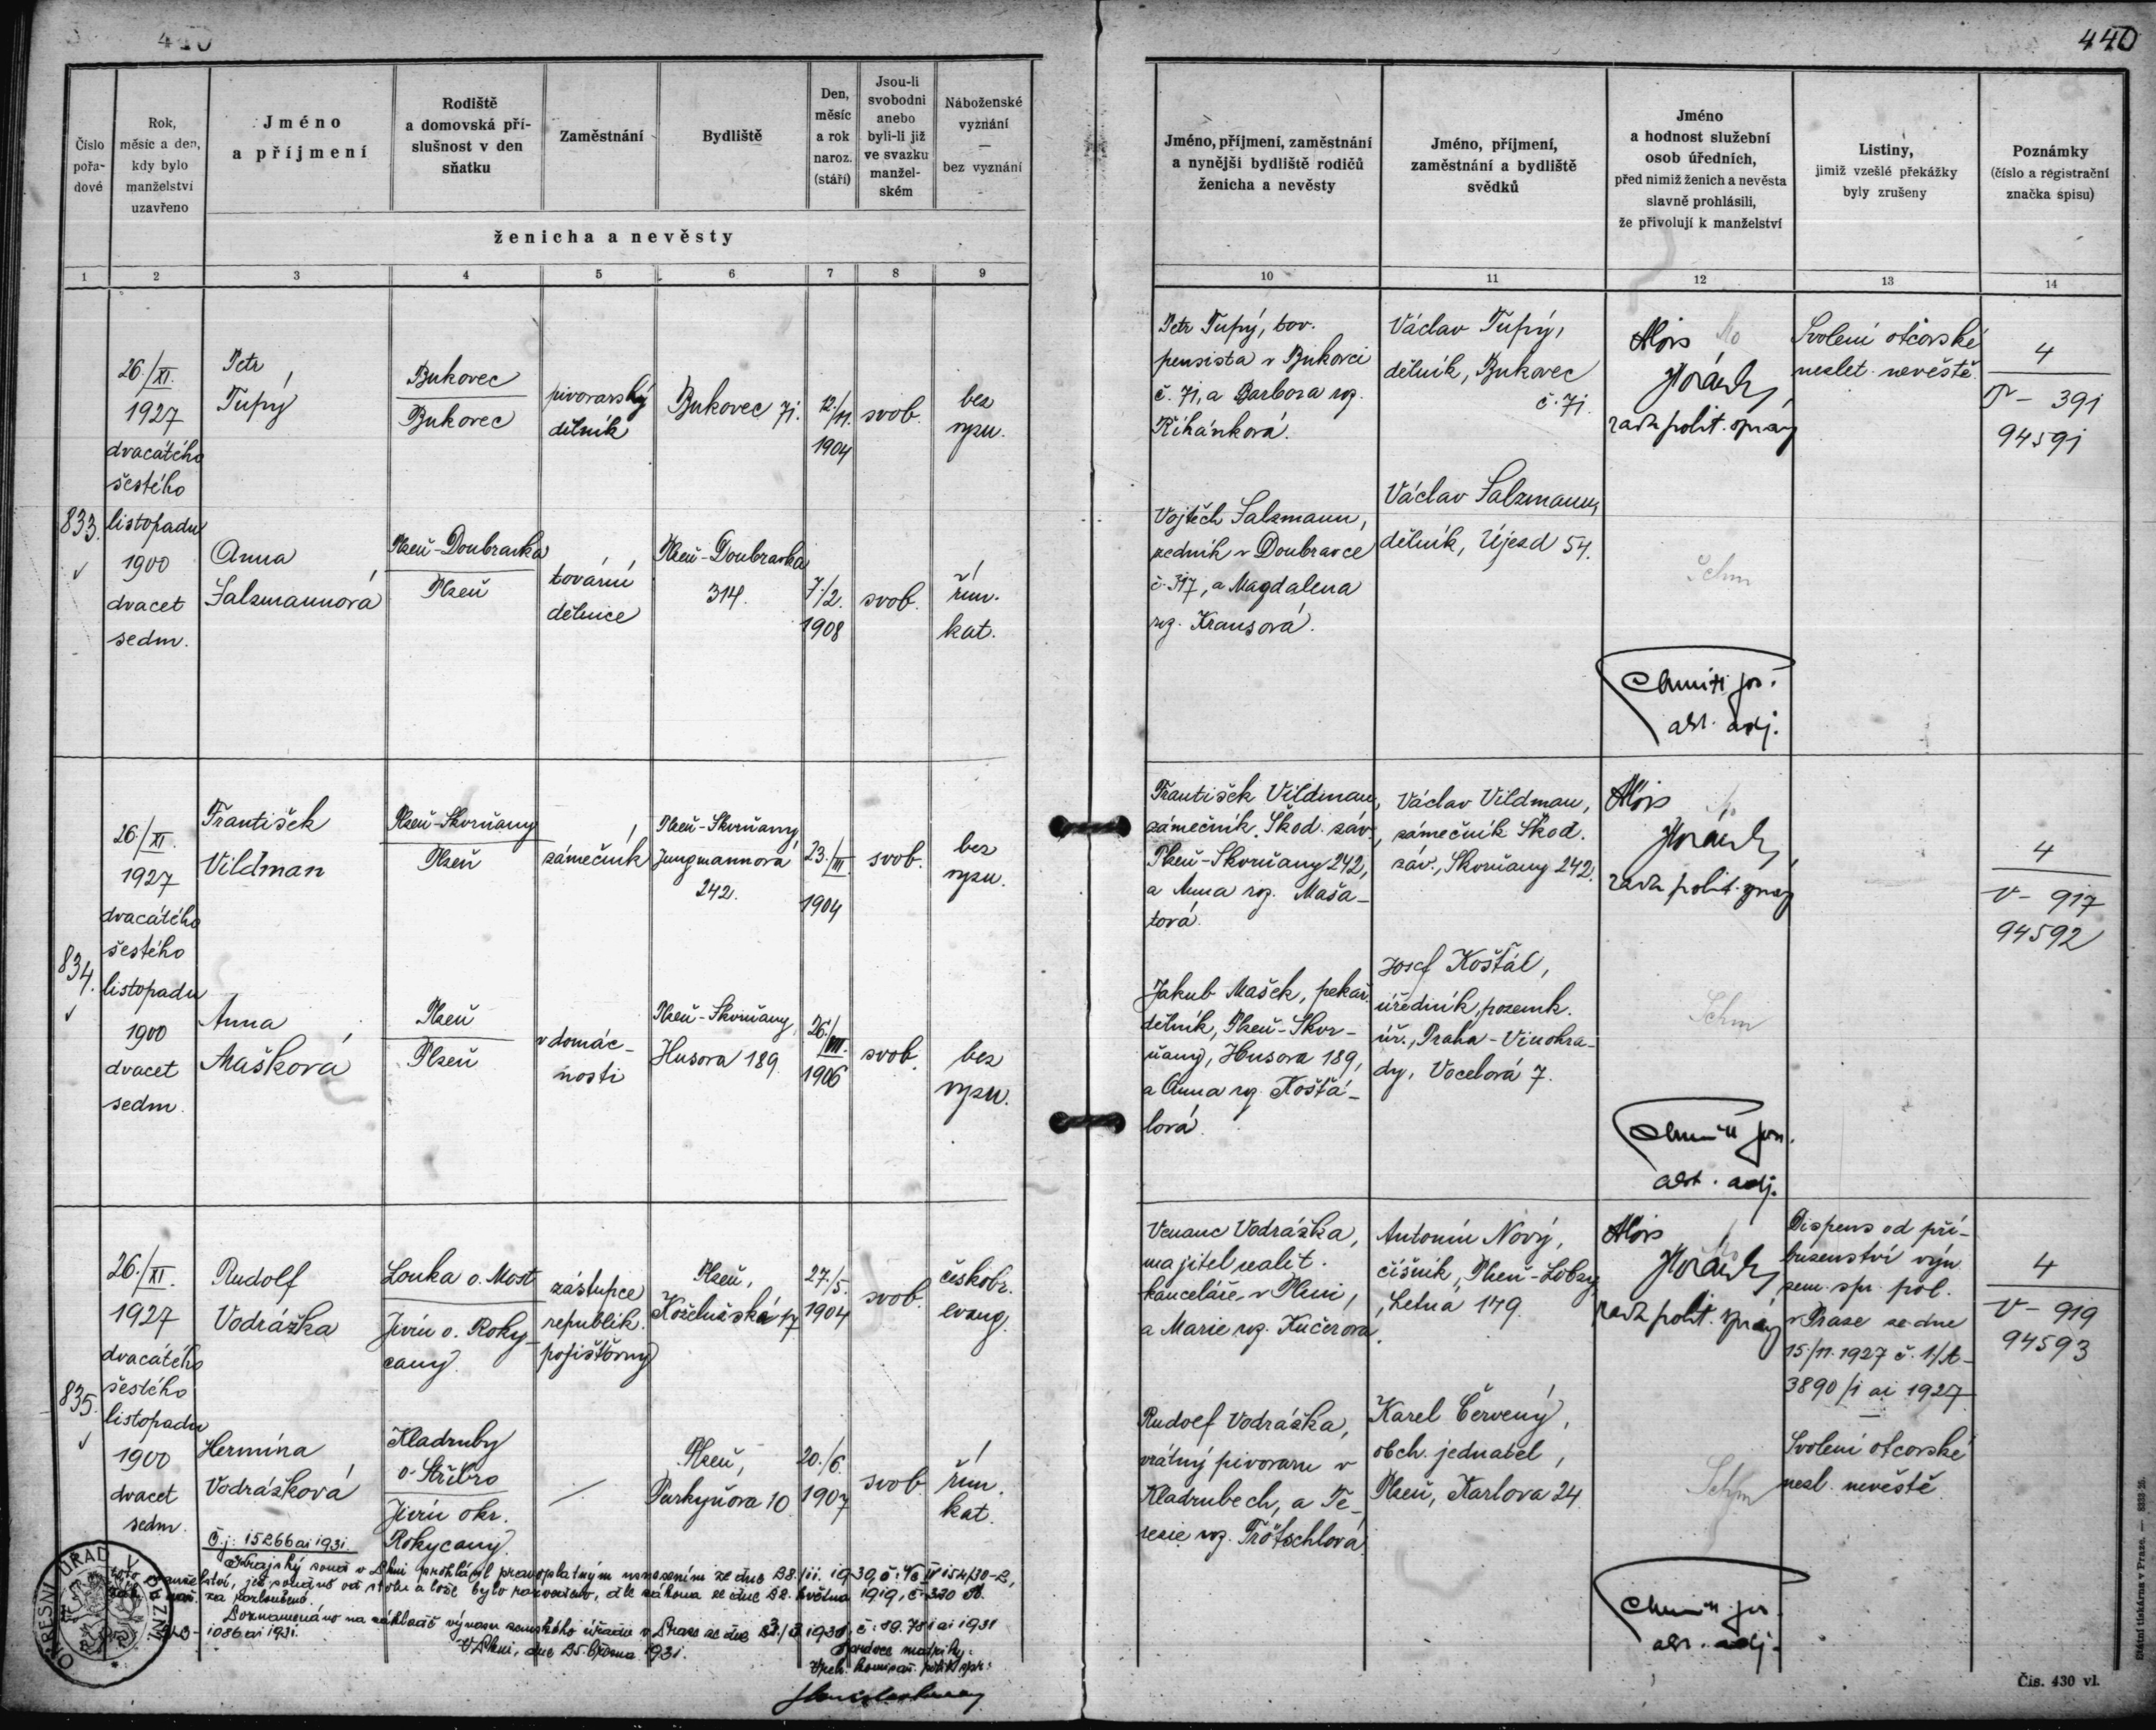 440
Číslo pořa- dové
Rok, měsíc a den, kdy bylo manželství uzavřeno
Jméno a příjmení
Rodiště a domovská pří- slušnost v den sňatku
Zaměstnání
Bydliště
Den, měsíc a rok naroz. (stáří)
Jsou-li svobodni anebo byli-li již ve svazku manžel- ském
Náboženské vyznání — bez vyznání
ženicha a nevěsty
1 2 3 4 5 6 7 8 9
26./XI.
1927
dvacátého
šestého
833. listopadu
1900
dvacet
sedm.
Petr
Tupý
Bukovec
Bukovec
pivovarský
dělník
Bukovec 71.
12./11.
1904
svob.
bez
vyzn.
Anna
Salzmannová
Plzeň-Doubravka
Plzeň
tovární
dělnice
Plzeň-Doubravka
314.
7./2.
1908
svob.
řím.
kat.
26./XI.
1927
dvacátého
šestého
834. listopadu
1900
dvacet
sedm.
František
Vildman
Plzeň-Skvrňany
Plzeň
zámečník
Plzeň-Skvrňany,
Jungmannova
242.
23./III.
1904
svob.
bez
vyzn.
Anna
Mašková
Plzeň
Plzeň
v domác-
nosti
Plzeň-Skvrňany
Husova 189.
26./VII.
1906
svob.
bez
vyzn.
26./XI.
1927
dvacátého
šestého
835. listopadu
1900
dvacet
sedm.
Rudolf
Vodrážka
Louka o. Most
Jivín o. Roky-
cany
zástupce
republik.
pojišťovny
Plzeň,
Koželužská 17
27./5.
1904
svob.
českobr.
evang.
Hermína
Vodrážková
Kladruby
o. Stříbro
Jivín okr.
Rokycany.
Plzeň,
Purkyňova 10
20./6.
1907
svob.
řím.
kat.
Č.j.: 15266 ai 1931.
Krajský soud v Plzni prohlásil pravoplatným usnesením ze dne
manželství, jež soudně od stolu a lože bylo rozvedeno, dle zákona ze dne 22. května 1919, č. 320 sb.
za rozloučené.
Poznamenáno na základě výnosu zemského úřadu v Praze ze dne
1086 ai 1931.
V Plzni, dne 25. března 1931.
Správce matriky:
OKRESNÍ ÚŘAD V PLZNI
440
Jméno, příjmení, zaměstnání a nynější bydliště rodičů ženicha a nevěsty
Jméno, příjmení, zaměstnání a bydliště svědků
Jméno a hodnost služební osob úředních, před nimiž ženich a nevěsta slavně prohlásili, že přivolují k manželství
Listiny, jimiž vzešlé překážky byly zrušeny
Poznámky (číslo a registrační značka spisu)
10 11 12 13 14
Petr Tupý, tov.
pensista v Bukovci
č. 71, a Barbora roz.
Řihánková.
Václav Tupý,
dělník, Bukovec
č. 71.
Alois
Horák,
rada polit. správy
Svolení otcovské
nezlet. nevěstě.
4
T - 391
94591
Vojtěch Salzmann,
zedník v Doubravce
č. 317, a Magdalena
roz. Krausová.
Václav Salzmann,
dělník, Újezd 54.
Schm
František Vildman,
zámečník Škod. záv.,
Plzeň-Skvrňany 242,
a Anna roz. Maša-
tová.
Václav Vildman,
zámečník Škod.
záv., Skvrňany 242.
Alois
Horák,
rada polit. správy
4
V - 917
94592
Jakub Mašek, pekař.
dělník, Plzeň-Skvr-
ňany, Husova 189,
a Anna roz. Košťá-
lová.
Josef Košťál,
úředník pozemk.
úř., Praha-Vinohra-
dy, Vocelová 7.
Schm
Venanc Vodrážka,
majitel realit.
kanceláře v Plzni,
a Marie roz. Kučerová.
Antonín Nový,
číšník, Plzeň-Lobzy,
Letná 179.
Alois
Horák,
rada polit. správy
Dispens od pří-
buzenství výn.
zem. spr. pol.
v Praze ze dne
15/11. 1927 č. 1/A-
3890/1 ai 1927
4
V - 919
94593
Rudolf Vodrážka,
vrátný pivovaru v
Kladrubech, a Te-
rezie roz. Trötschlová.
Karel Červený,
obch. jednatel,
Plzeň, Karlova 24
Schm
Svolení otcovské
nezl. nevěstě.
Státní tiskárna v Praze.
Čís. 430 vl.